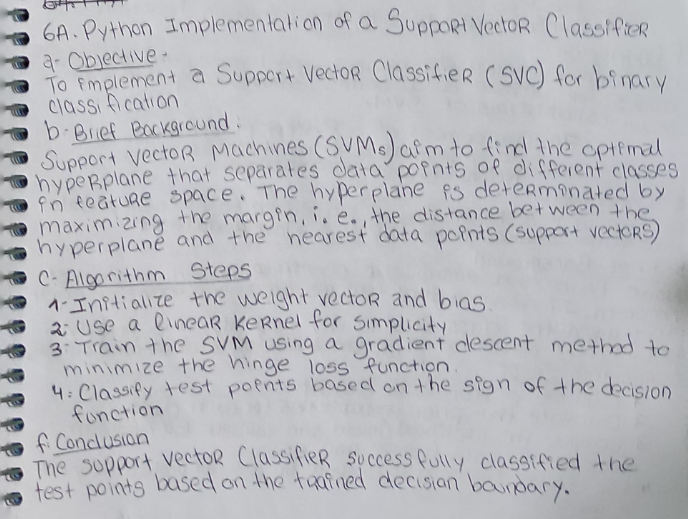 6A. Python Implementation of a Support Vector Classifier
a- Objective:
To implement a Support Vector Classifier (SVC) for binary
classification
b- Brief Background:
Support Vector Machines (SVMs) aim to find the optimal
hyperplane that separates data points of different classes
in feature space. The hyperplane is determinated by
maximizing the margin, i.e., the distance between the
hyperplane and the nearest data points (support vectors)
C- Algorithm Steps
1- Initialize the weight vector and bias.
2- Use a linear Kernel for simplicity
3- Train the SVM using a gradient descent method to
minimize the hinge loss function.
4: Classify test points based on the sign of the decision
function
f. Conclusion
The support vector Classifier successfully classified the
test points based on the trained decision boundary.